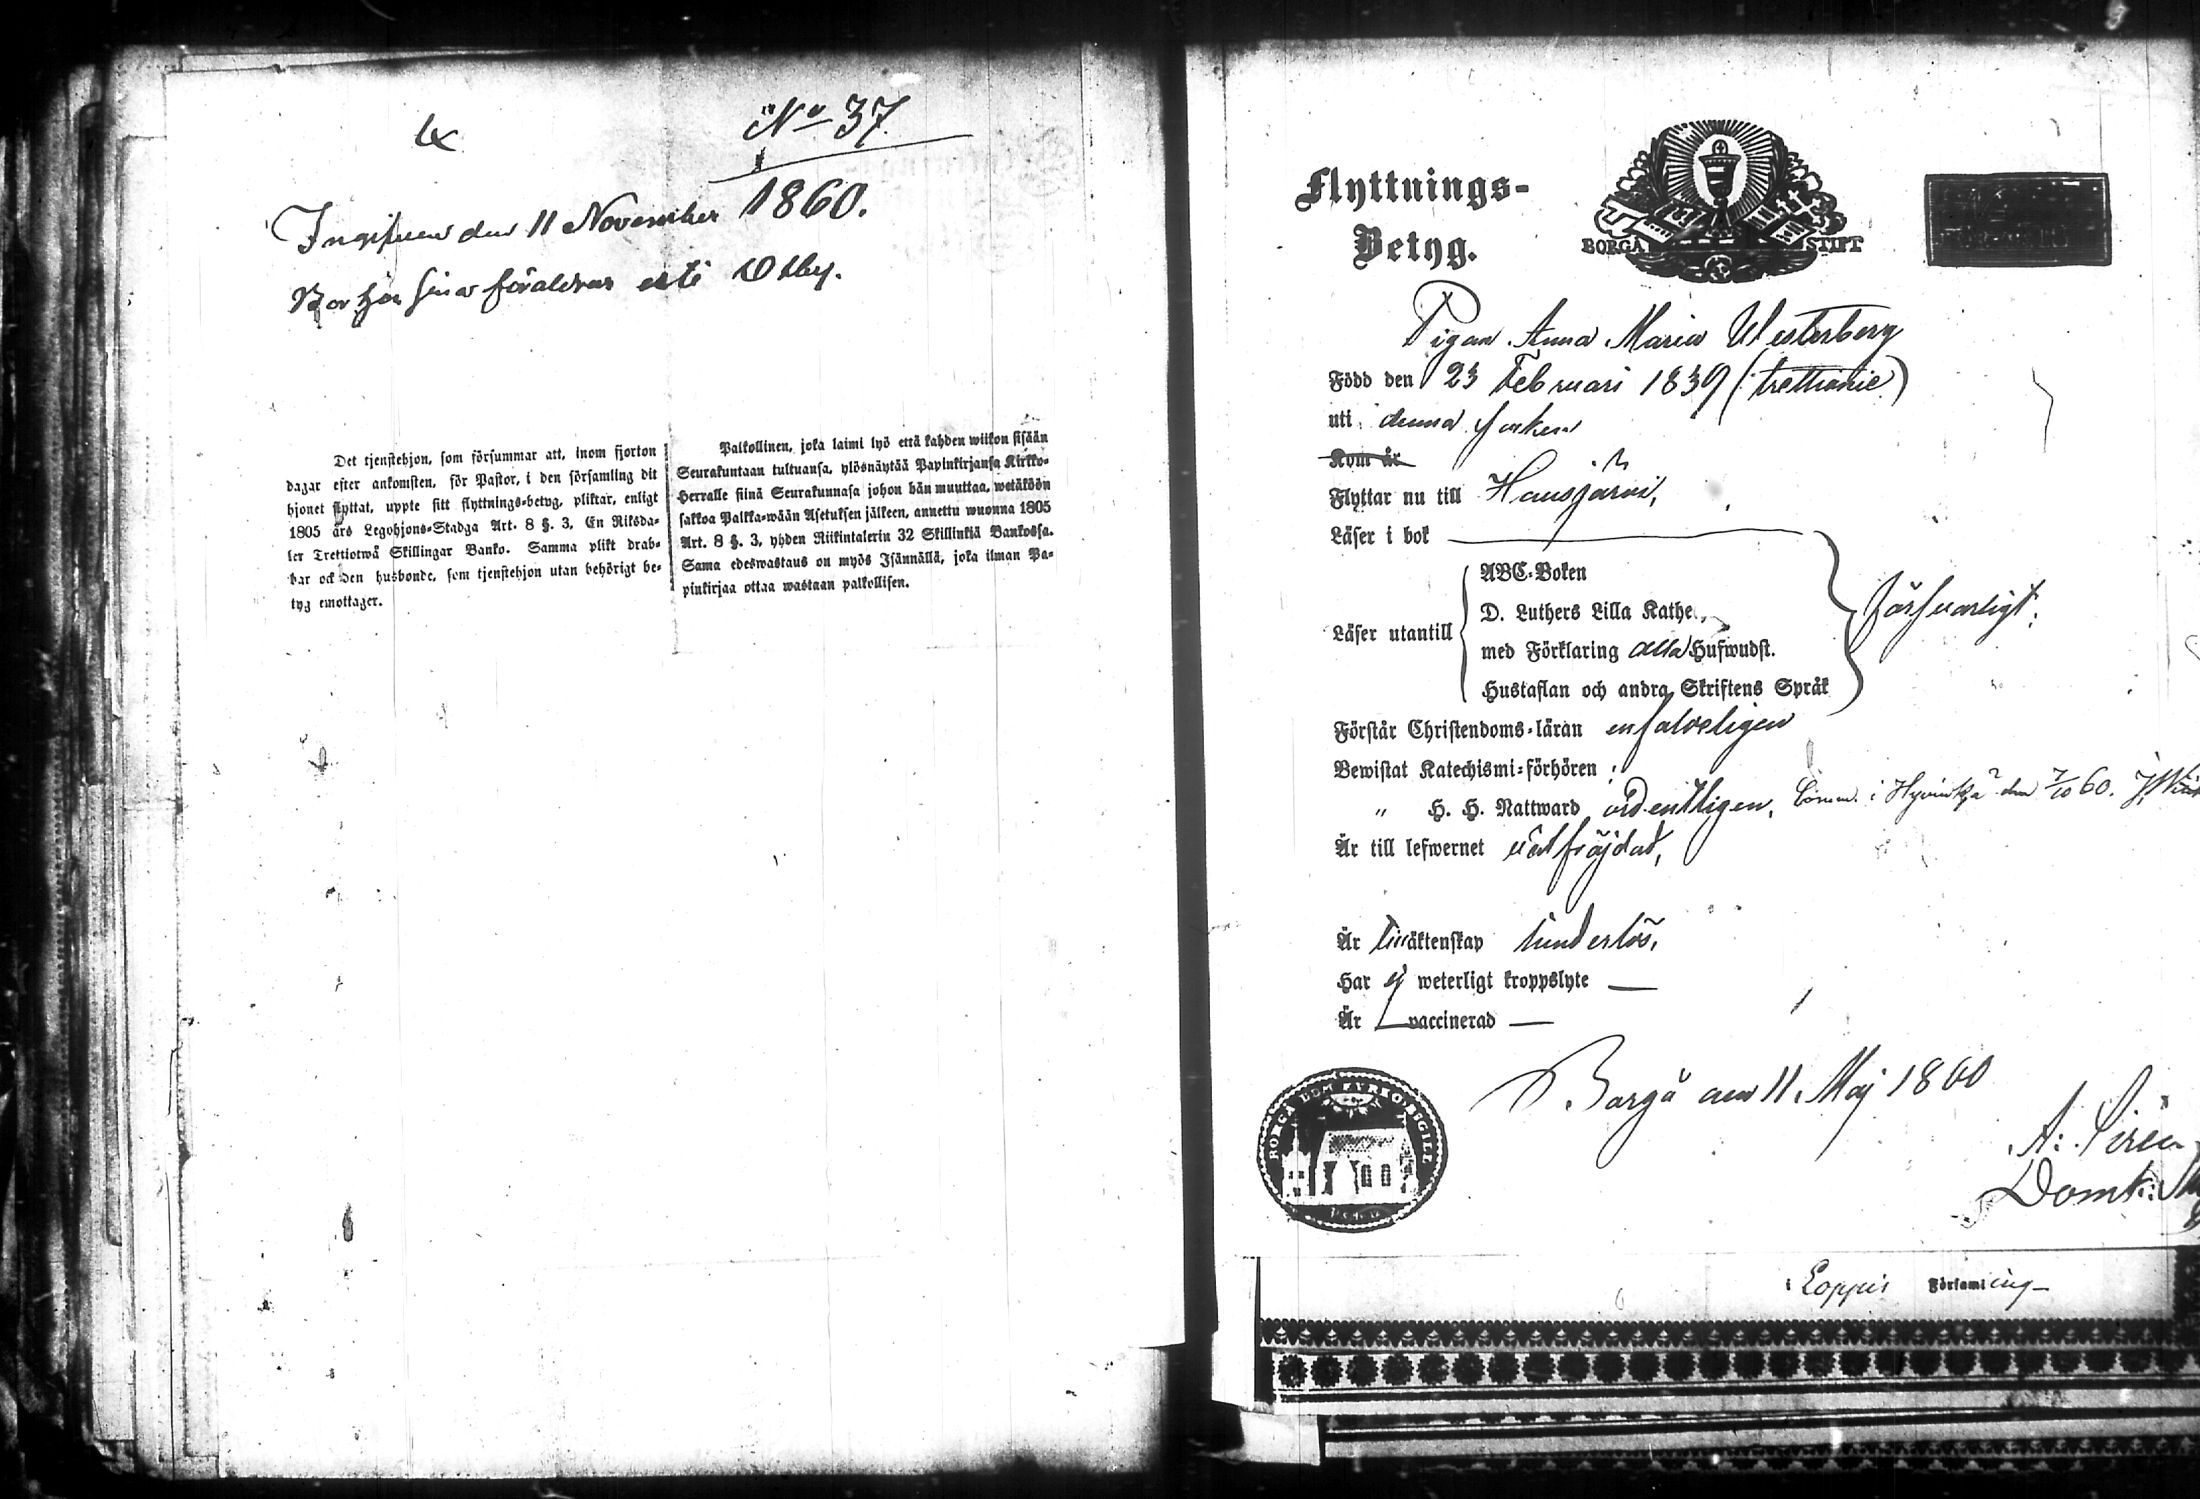 No 37.
1860.
Ingifven den 11 November
Bor hos sina föräldrar uti
Det tjenstehjon, som försummar att, inom fjorton
dagar efter ankomsten, för Pastor, i den församling dit
hjonet flyttat, uppte sitt flyttnings-betyg, pliktar, enligt
1805 års Legohjons-Stadga Art. 8 §. 3, En Riksda-
ler Trettiotwå Skillingar Banko. Samma plikt drab-
bar ock den husbonde, som tjenstehjon utan behörigt be-
tyg emottager.
Palkollinen, joka laimi lyö että kahden wiikon sisään
Seurakuntaan tultuansa, ylösnäytää Papinkirjansa Kirkko-
Herralle siinä Seurakunnasa johon hän muuttaa, wetäköön
sakkoa Palkka-wään Asetuksen jälkeen, annettu wuonna 1805
Art. 8 §. 3, yhden Riikintalerin 32 Skillinkiä Bankossa.
Sama edeswastaus on myös Isännällä, joka ilman Pa-
pinkirjaa ottaa wastaan palkollisen.
Flyttnings-
Betyg.
BORGÅ STIFT
Pigan Anna Maria Westerberg
Född den 23 Februari 1839 (trettionie)
uti denna socken
Kom år
Flyttar nu till Hausjärvi,
Läser i bok
Läser utantill
ABC-Boken
D. Luthers Lilla Kathe.
med Förklaring alla Hufwudst.
Hustaflan och andra Skriftens Språk
försvarligt.
Förstår Christendoms-läran enfaldeligen
Bewistat Katechismi-förhören
" H. H. Nattward ordentligen, Comm. i Hyvinkä den 7/10 60.
Är till lefwernet välfräjdad,
Är till äktenskap hinderlös,
Har ej weterligt kroppslyte —
Är vaccinerad —
Borgå den 11 Maj 1860
A: Siren
Domk:
BORGÅ
i Loppis Församling